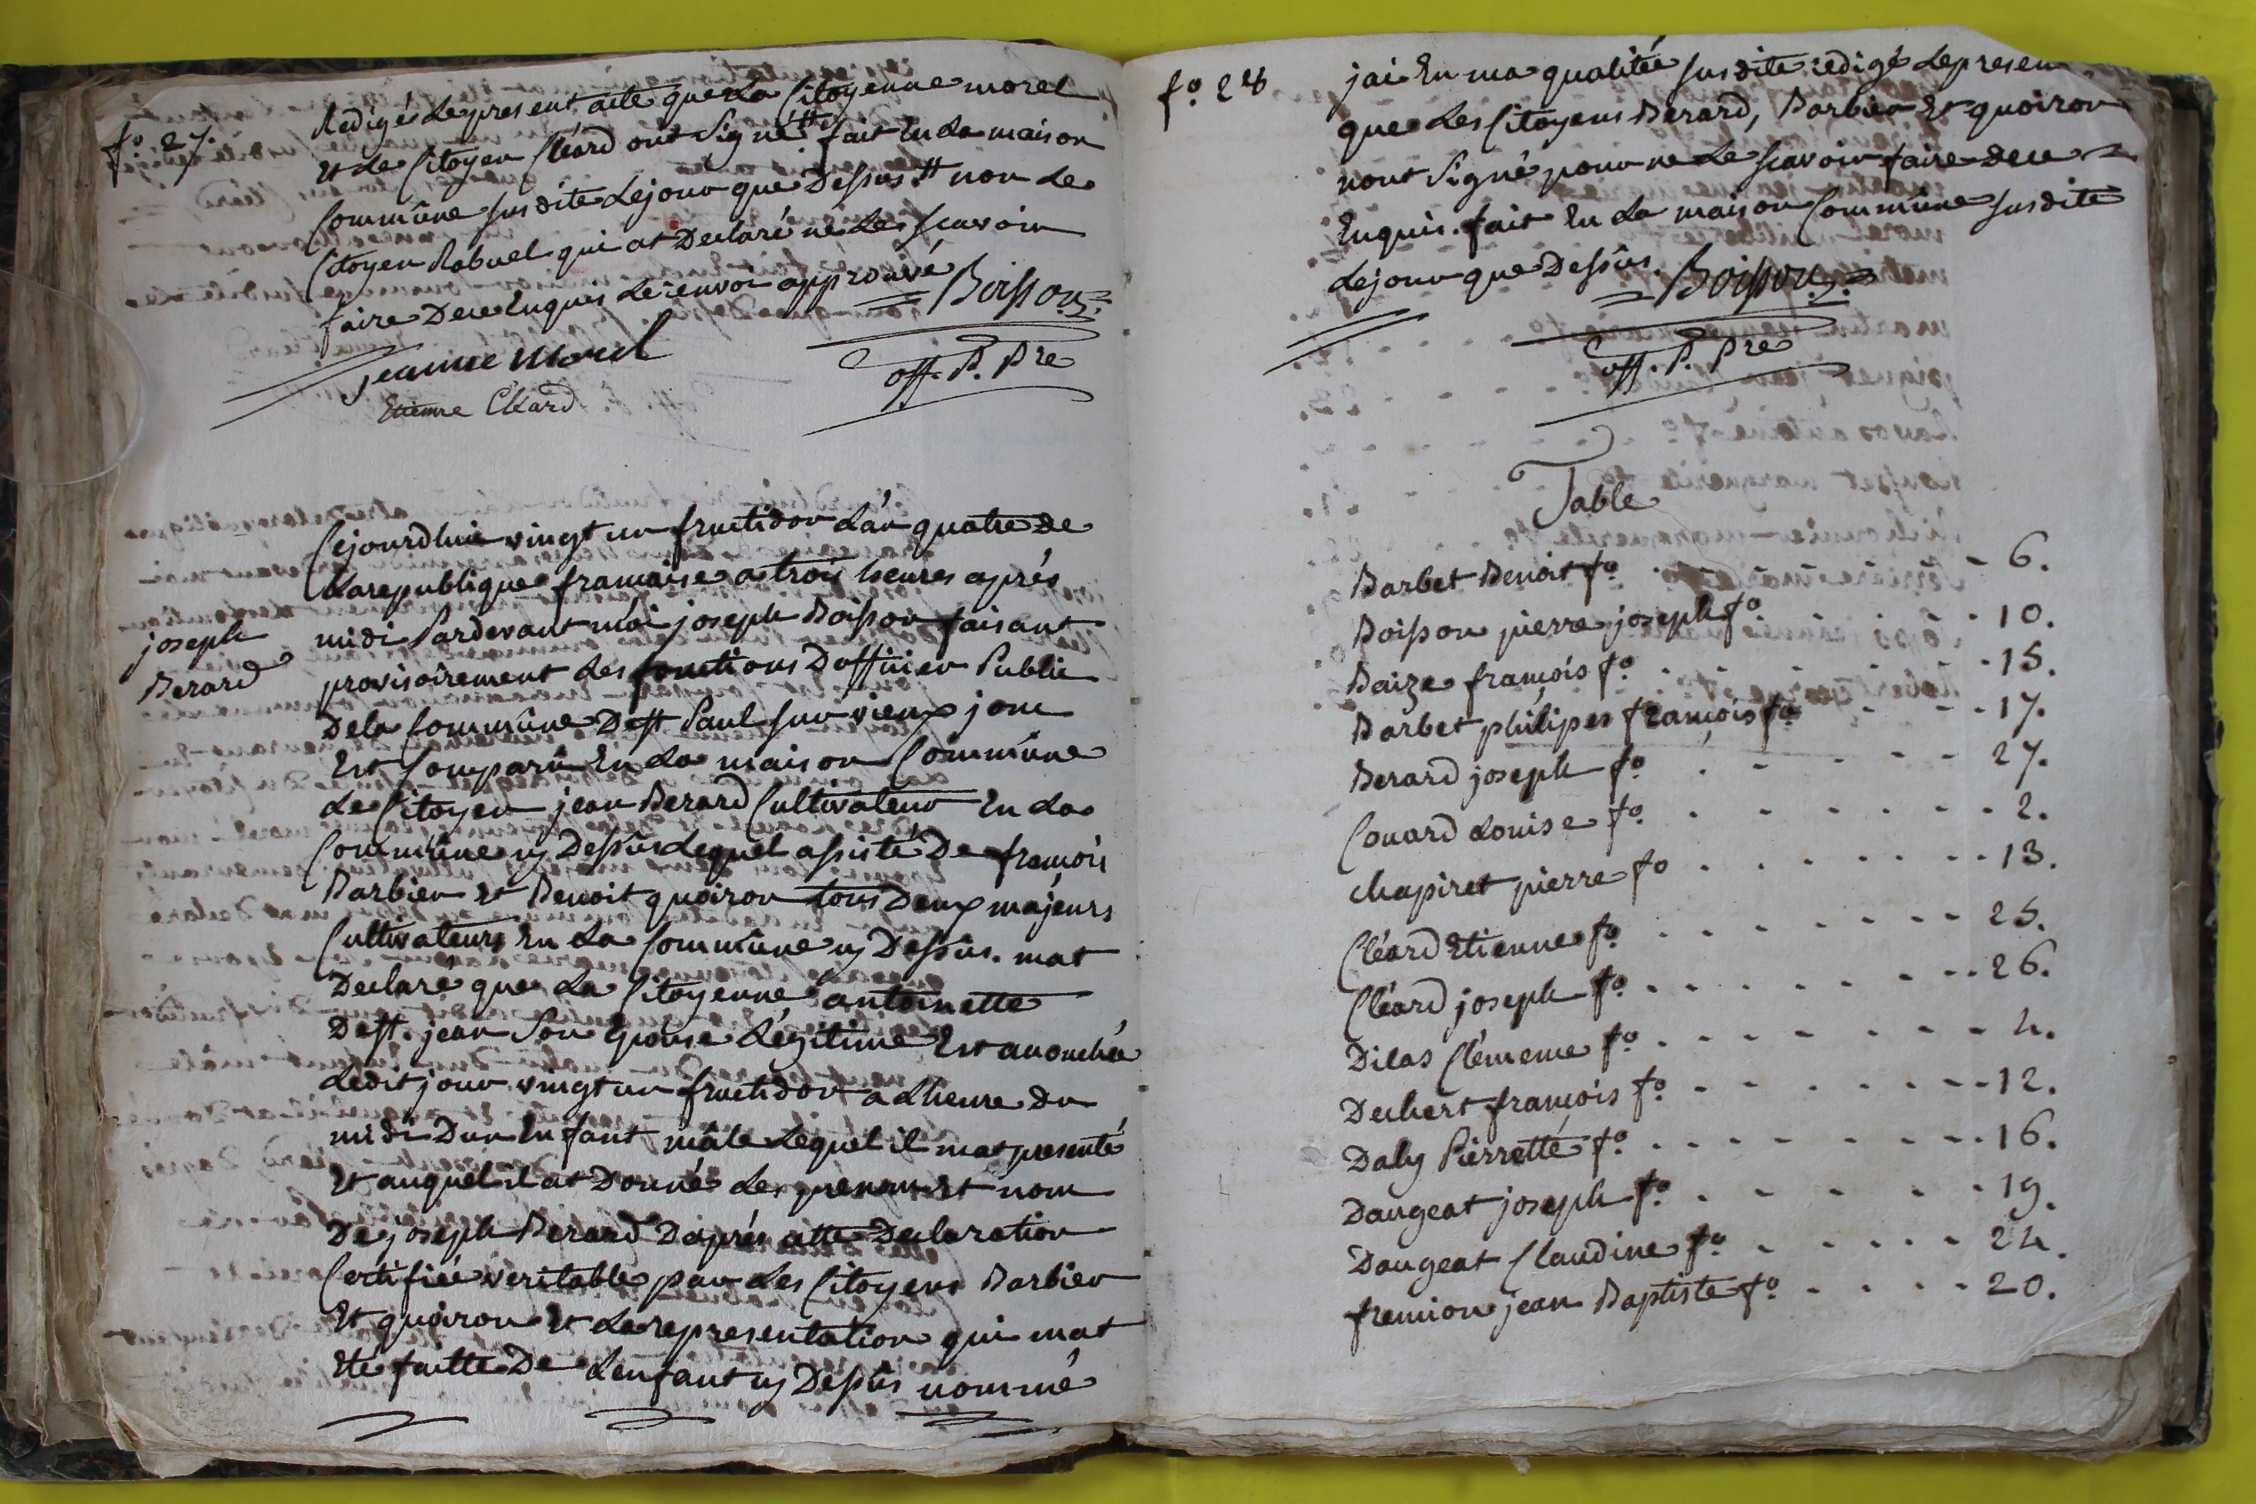 fo. 27.
Redigés Lepresent acte que La Citoyenne morel
Et Le Citoyen Cléard ont Signé # fait En La maison
Commûne susdite Lejour que Dessus # non Le
Citoyen Rabuel qui at Declaré ne Le scavoir
faire Dece Enquis Lerenvoi approuvé
Boisson
jeanne Morel
off. P. Pre
Etienne Cléard
joseph
Berard
Cejourdhui vingt un fructidor Lán quatre de
Larepublique francaise a trois heures aprés
midi Pardevant môi joseph Boisson faisant
provisoirement Les fonctions Dofficier Public
Dela Commûne De st Paul sur vieux jonc
Est Comparû En La maison Commûne
Le Citoyen jean Berard Cultivateur En La
Commûne cy Dessus Lequel assisté De francois
Barbier Et Benoit quoiron tous Deux majeurs
Cultivateurs En La Commûne cy Dessus. mat
Declaré que La Citoyenne antoinette
Dest. jean Son Epouse Légitime Est accouchée
Ledit jour vingt un fructidor a Lheure Du
midi Dun Enfant mâle Lequel il mat presenté
Et auquel il at Donné Les prenom Et nom
De joseph Berard Daprés cette Declaration
Certifiée veritable par Les Citoyens Barbier
Et quoiron Et La representation qui mat
Eté faitte De Lenfant cy Dessûs nommé
fo. 28
jai En ma qualitée susdite redigé Lepresen
que Les Citoyens Berard, Barbier Et quoiron
nont Signé pour ne Le scavoir faire dece
Enquis. fait En La maison Commûne susdite
Lejour que Dessûs.
Boisson
off. P. Pre
Table
Barbet Benoit fo . - - 6.
Boisson pierre joseph fo . . - - - 10.
Baize francois fo . . - - - - - 15.
Barbet philipes francois fo - - - 17.
Berard joseph fo . - - - - 27.
Couard Louise fo . . - - - - - 2.
chapiret pierre fo . . . . - - - 13.
Cléard Etienne fo . . . . - - - 25.
Cléard joseph fo . . . . - - - 26.
Dilas Clémence fo . . - - - - - 4.
Dechert francois fo . - - - - - 12.
Daly Pierrette fo . . . - - - - 16.
Daugeat joseph fo . . - - - 19.
Daugeat Claudine fo . . - - - 24.
fremion jean Baptiste fo . . - - - 20.